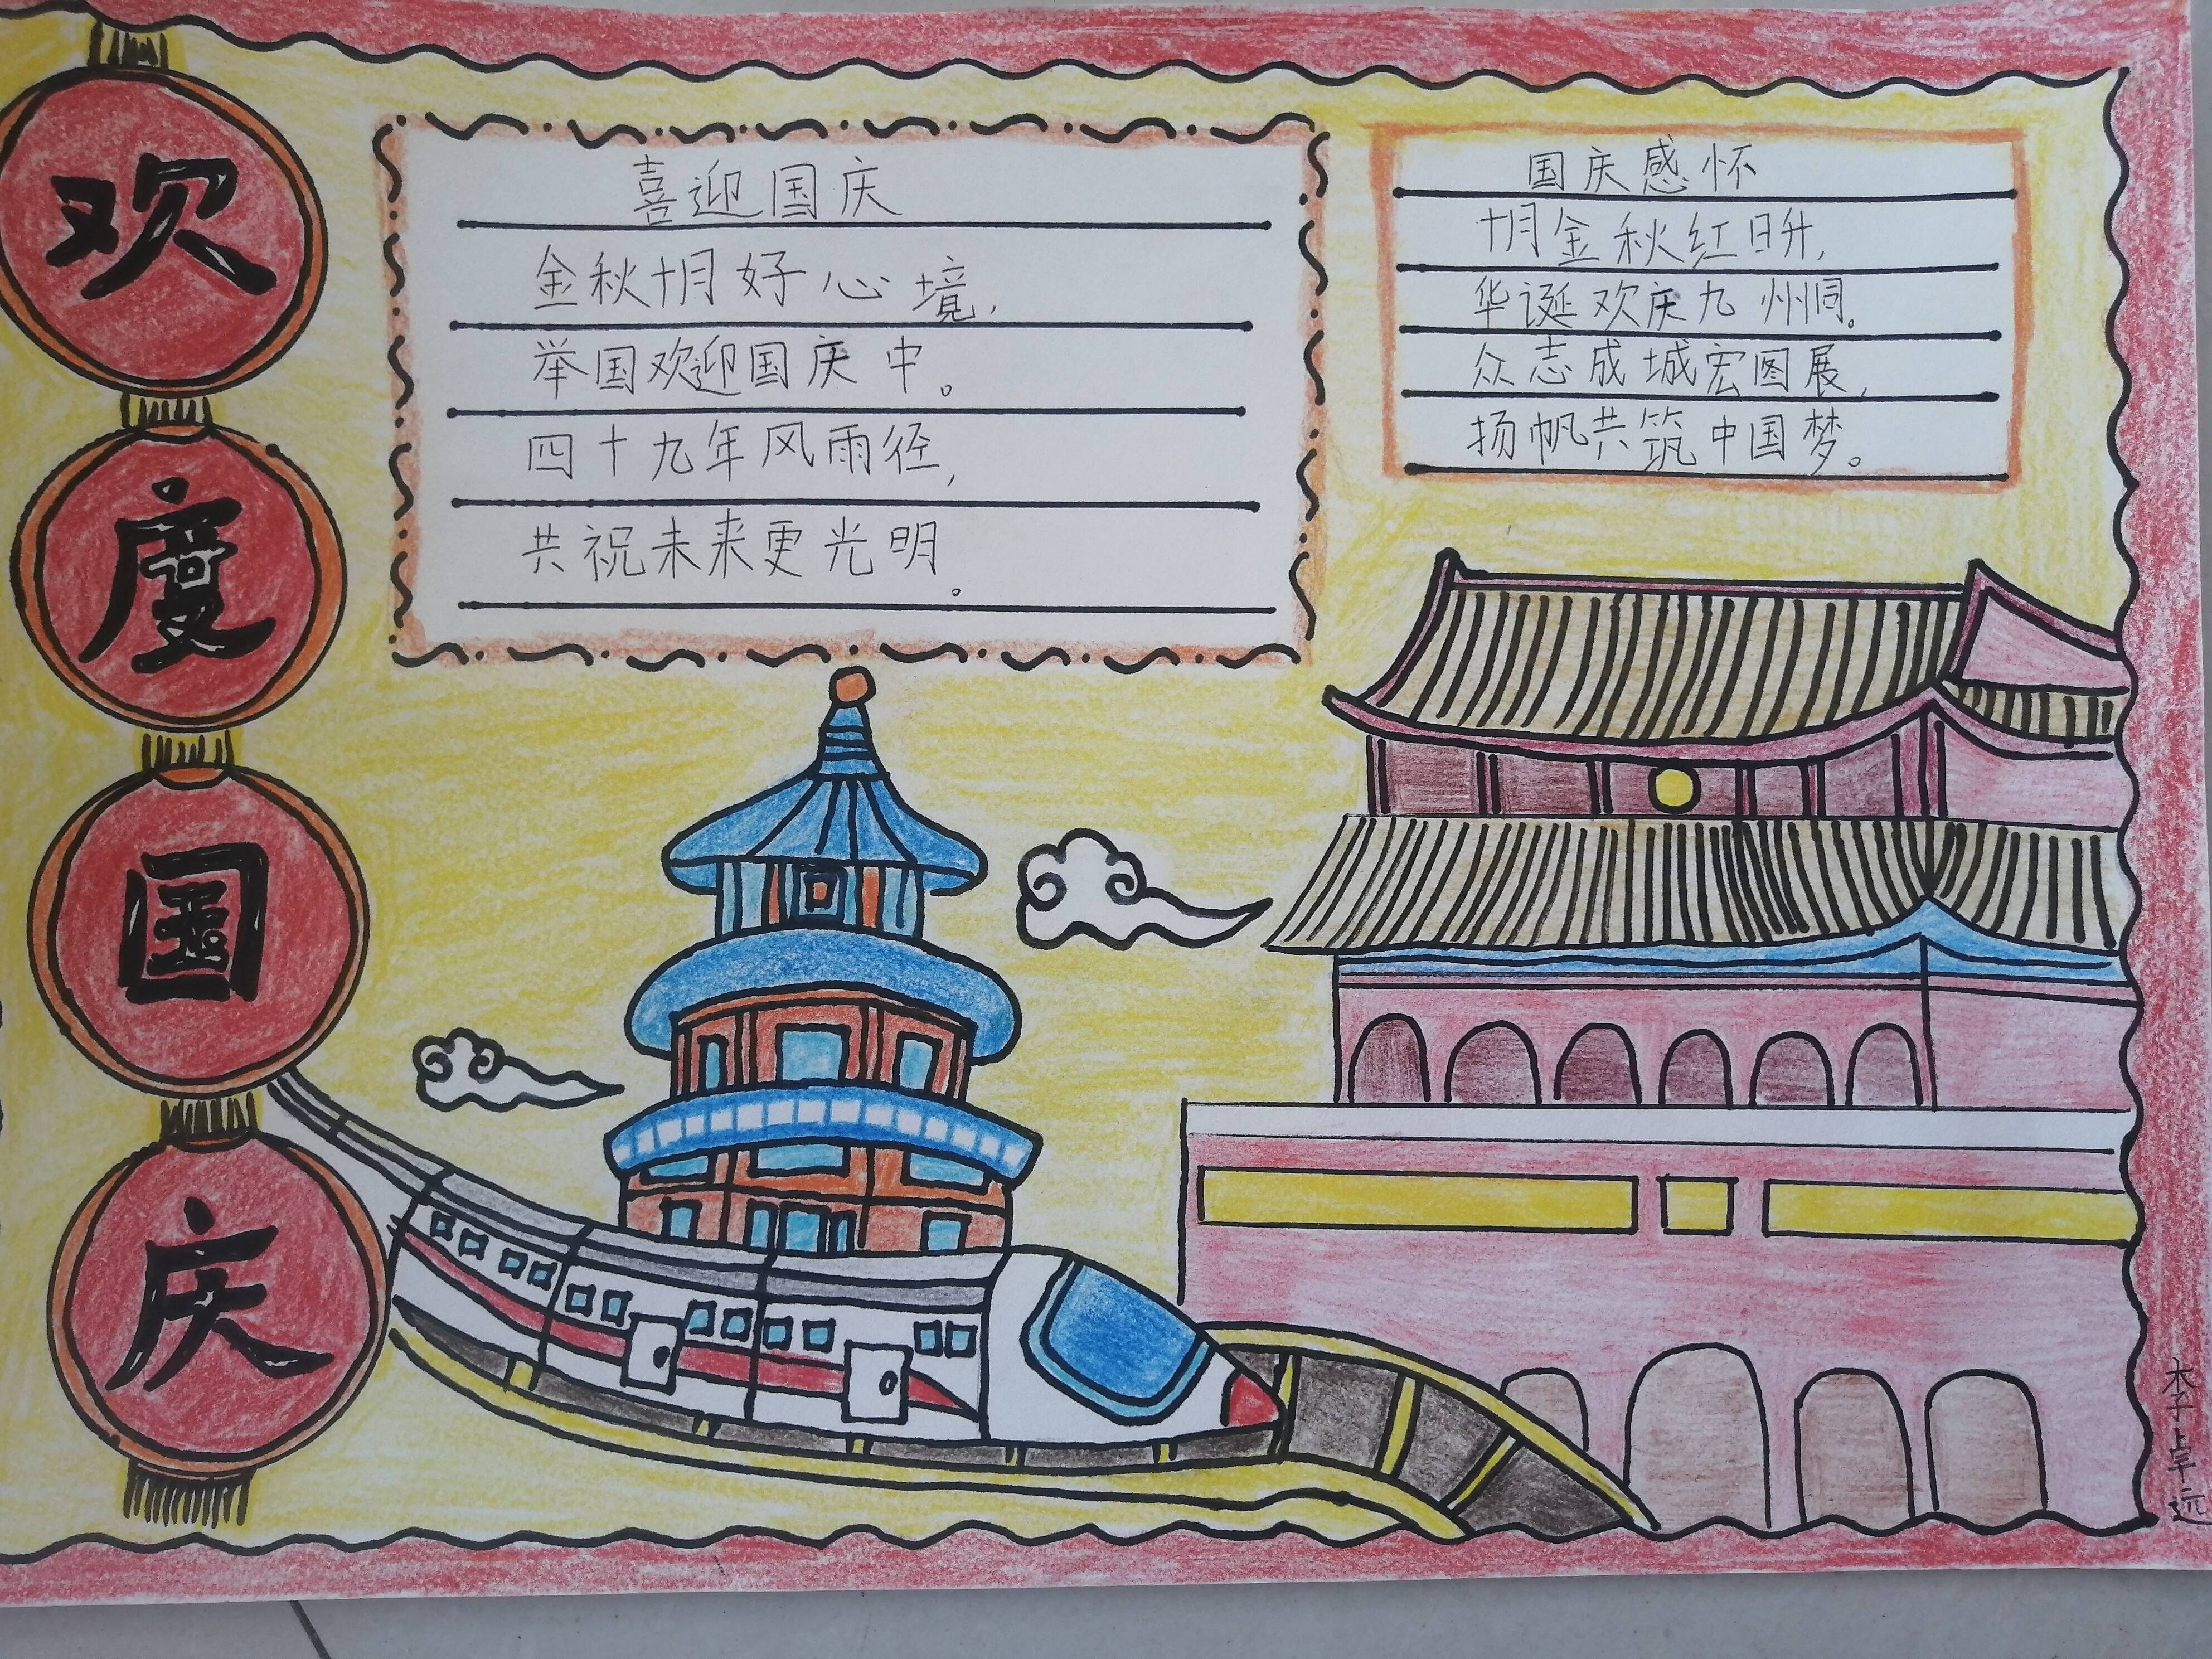 欢度国庆
喜迎国庆
金秋十月好心境,
举国欢迎国庆中。
四十九年风雨径,
共祝未来更光明。
国庆感怀
十月金秋红日升,
华诞欢庆九州同。
众志成城宏图展,
扬帆共筑中国梦。
李卓远